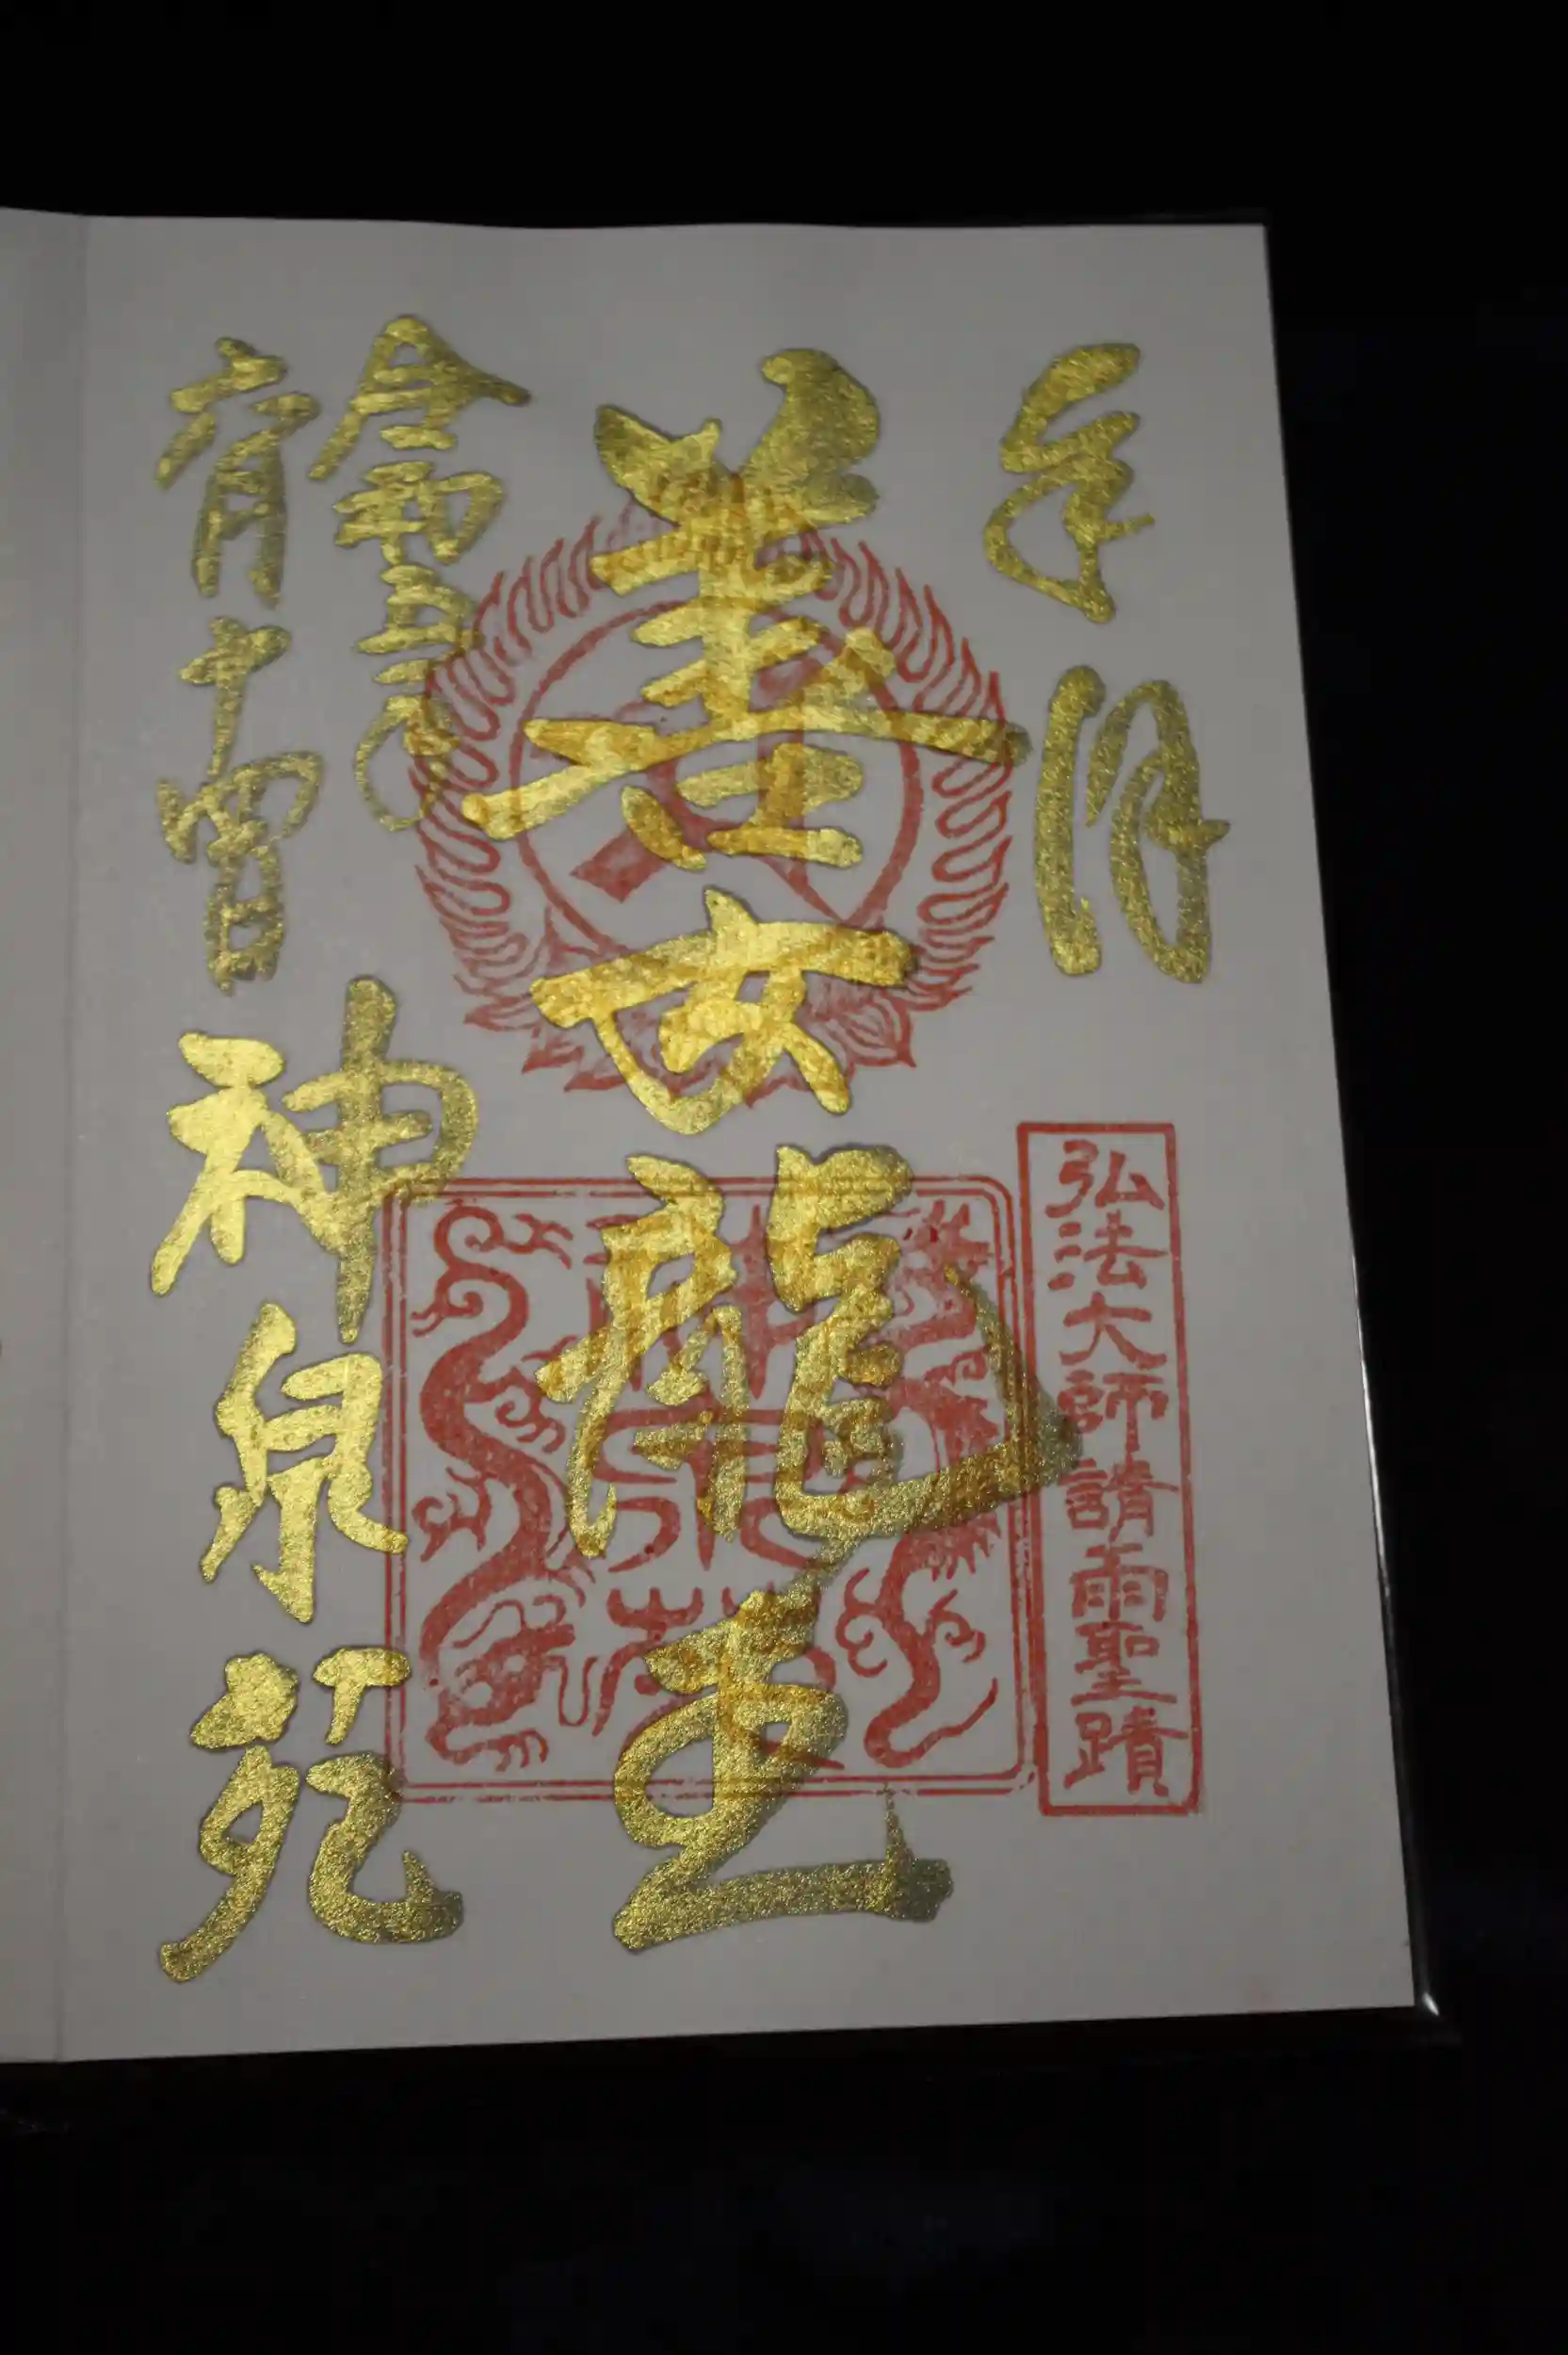 奉拝
弘法大師請雨聖蹟
善女龍王
神泉苑
令和五年
六月十四日
神泉苑